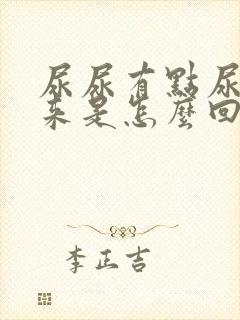 尿尿有點尿
來是怎麼回
李正吉